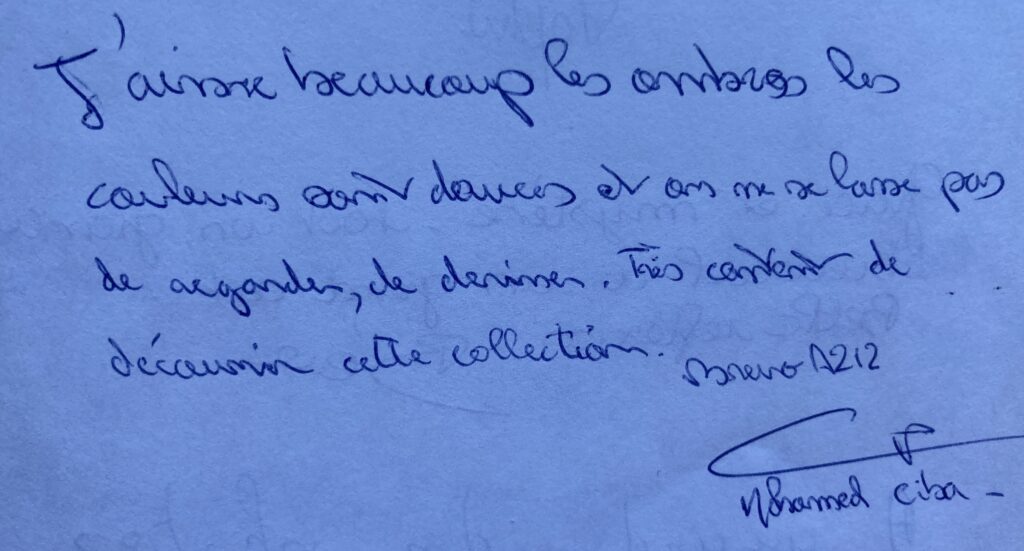 J'aime beaucoup les ombres les
couleurs sont douces et on ne se lasse pas
de regarder, de deviner. Très content de
découvrir cette collection.
Bravo AZIZ
Mohamed Ciba